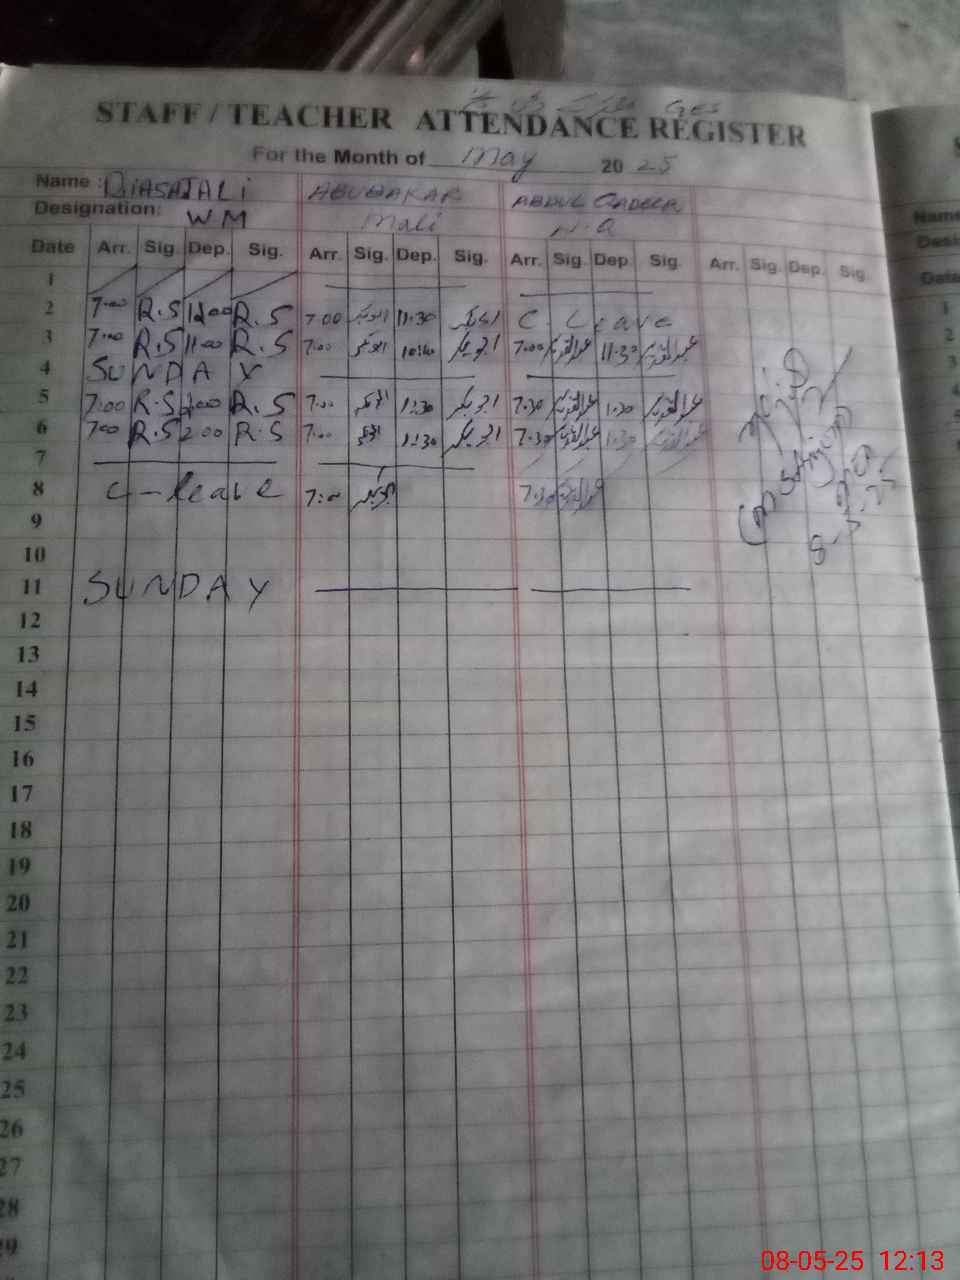 STAFF / TEACHER ATTENDANCE REGISTER
For the Month of May 2025
Name : RIASAT ALI ABUBAKAR ABDUL QADEER
Designation: WM Mali N.Q
Date Arr. Sig. Dep. Sig. Arr. Sig. Dep. Sig. Arr. Sig. Dep. Sig. Arr. Sig. Dep. Sig.
1
2 7:00 R.S R.S 7:00 ابوبکر 11:30 ابوبکر C. Leave
3 7:00 R.S 11:00 R.S 7:00 ابوبکر ابوبکر 7:00 عبدالقدیر 11:30 عبدالقدیر
4 SUNDAY
5 7:00 R.S R.S 7:00 ابوبکر 1:30 ابوبکر 7:30 عبدالقدیر 1:30 عبدالقدیر
6 7:00 R.S 2:00 R.S 7:00 ابوبکر 1:30 ابوبکر 7:30 عبدالقدیر 1:30 عبدالقدیر
7
8 C-leave 7:00 ابوبکر 7:30 عبدالقدیر
9
10
11 SUNDAY
12
13
14
15
16
17
18
19
20
21
22
23
24
25
26
27
28
29
Name
Date
1
2
3
08-05-25 12:13